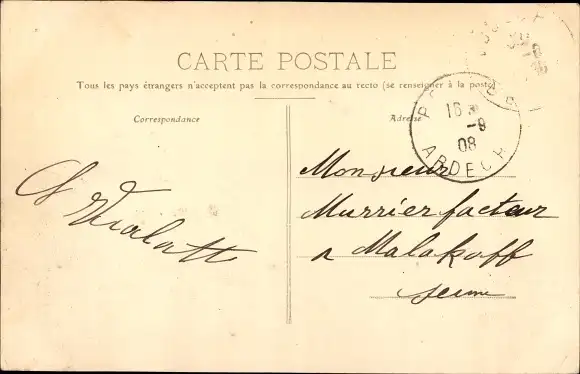 CARTE POSTALE
Tous les pays étrangers n'acceptent pas la correspondance au recto (se renseigner à la poste)
Correspondance
Adresse
16
-9
08
ARDECH
Monsieur
Murrier facteur
a Malakoff
Seine